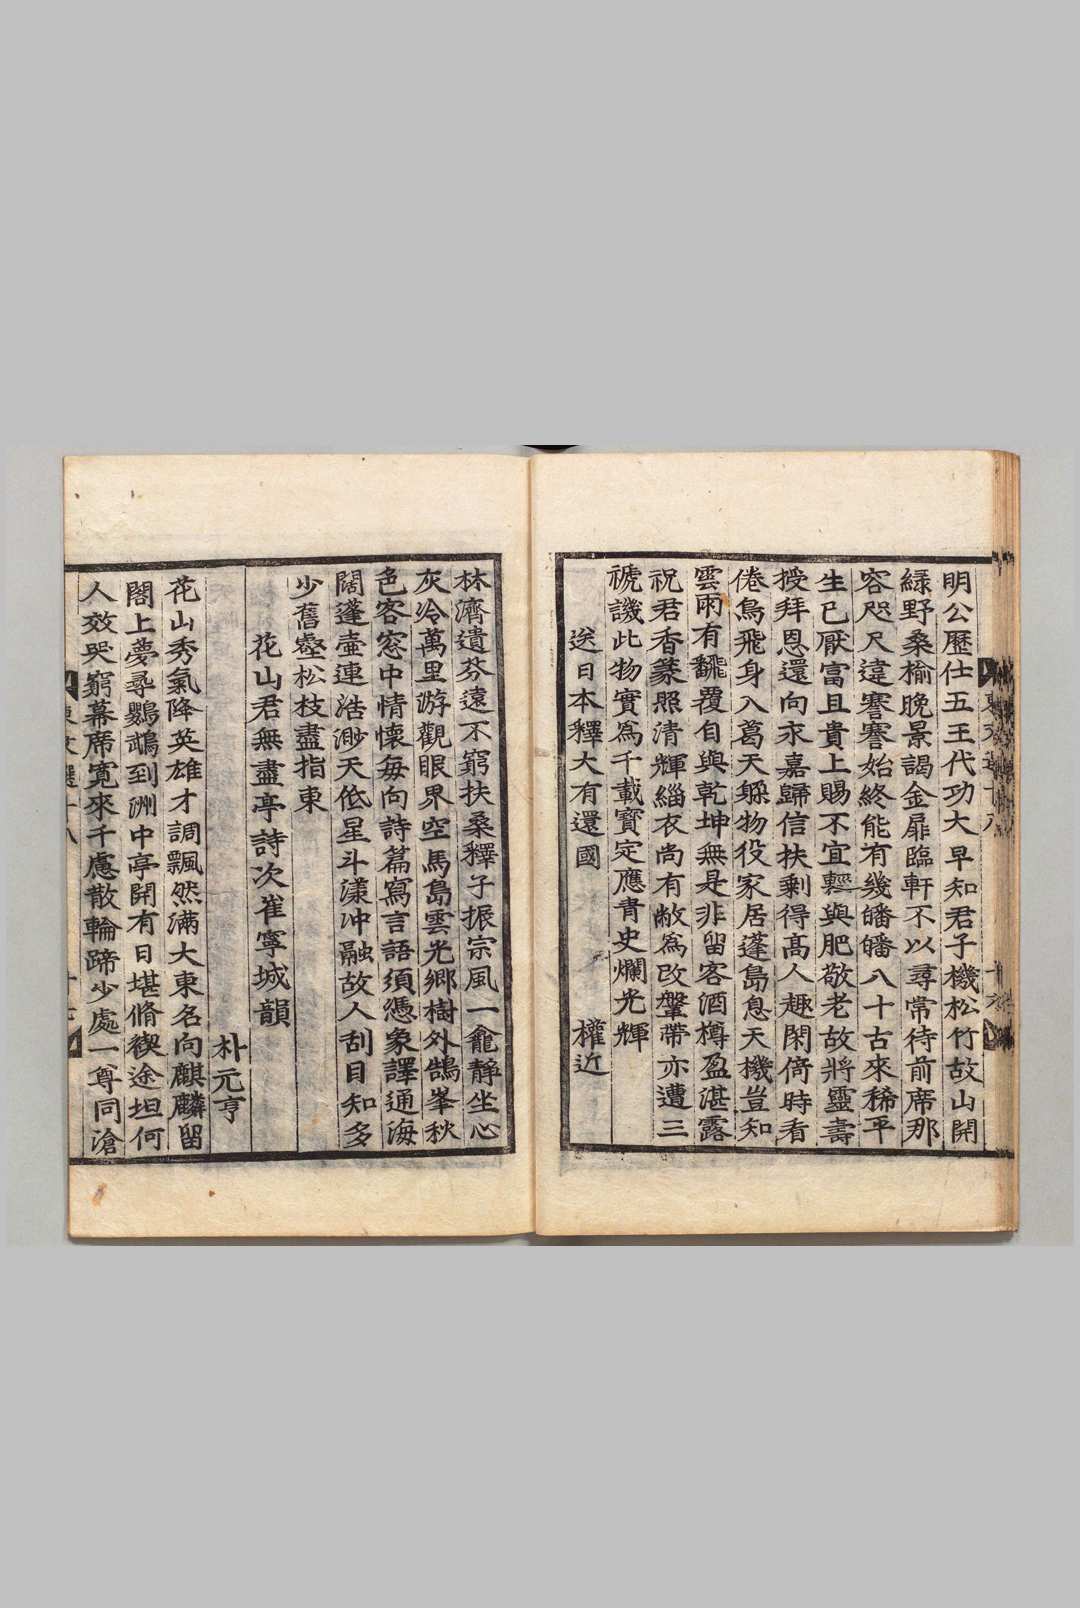 明公歷仕五王代功大早知君子機松竹故山開
綠野桑楡晚景謁金扉臨軒不以尋常待前席那
容咫尺違謇謇始終能有幾皤皤八十古來稀平
生已厭富且貴上賜不宜輕與肥敬老故將靈壽
授拜恩還向永嘉歸信扶剩得高人趣閑倚時看
倦鳥飛身入葛天躶物役家居蓬島息天機豈知
雲雨有飜覆自與乾坤無是非留客酒樽盈湛露
祝君香篆照淸輝緇衣尙有敝爲改鞶帶亦遭三
褫譏此物實爲千載寳定應靑史爛光輝
送日本釋大有還國 權近
林濟遺芬遠不窮扶桑釋子振宗風一龕靜坐心
灰冷萬里游觀眼界空馬島雲光鄕樹外鵠峯秋
色客窓中情懷每向詩篇寫言語須憑象譯通海
闊蓬壷連浩渺天低星斗漾冲融故人刮目知多
少舊壑松枝盡指東
花山君無盡亭詩次崔寧城韻
朴元亨
花山秀氣降英雄才調飄然滿大東名向麒麟留
閣上夢尋鸚鵡到洲中亭開有日堪脩禊途坦何
人效哭窮幕席寬來千慮散輪蹄少處一尊同滄
東文選十八